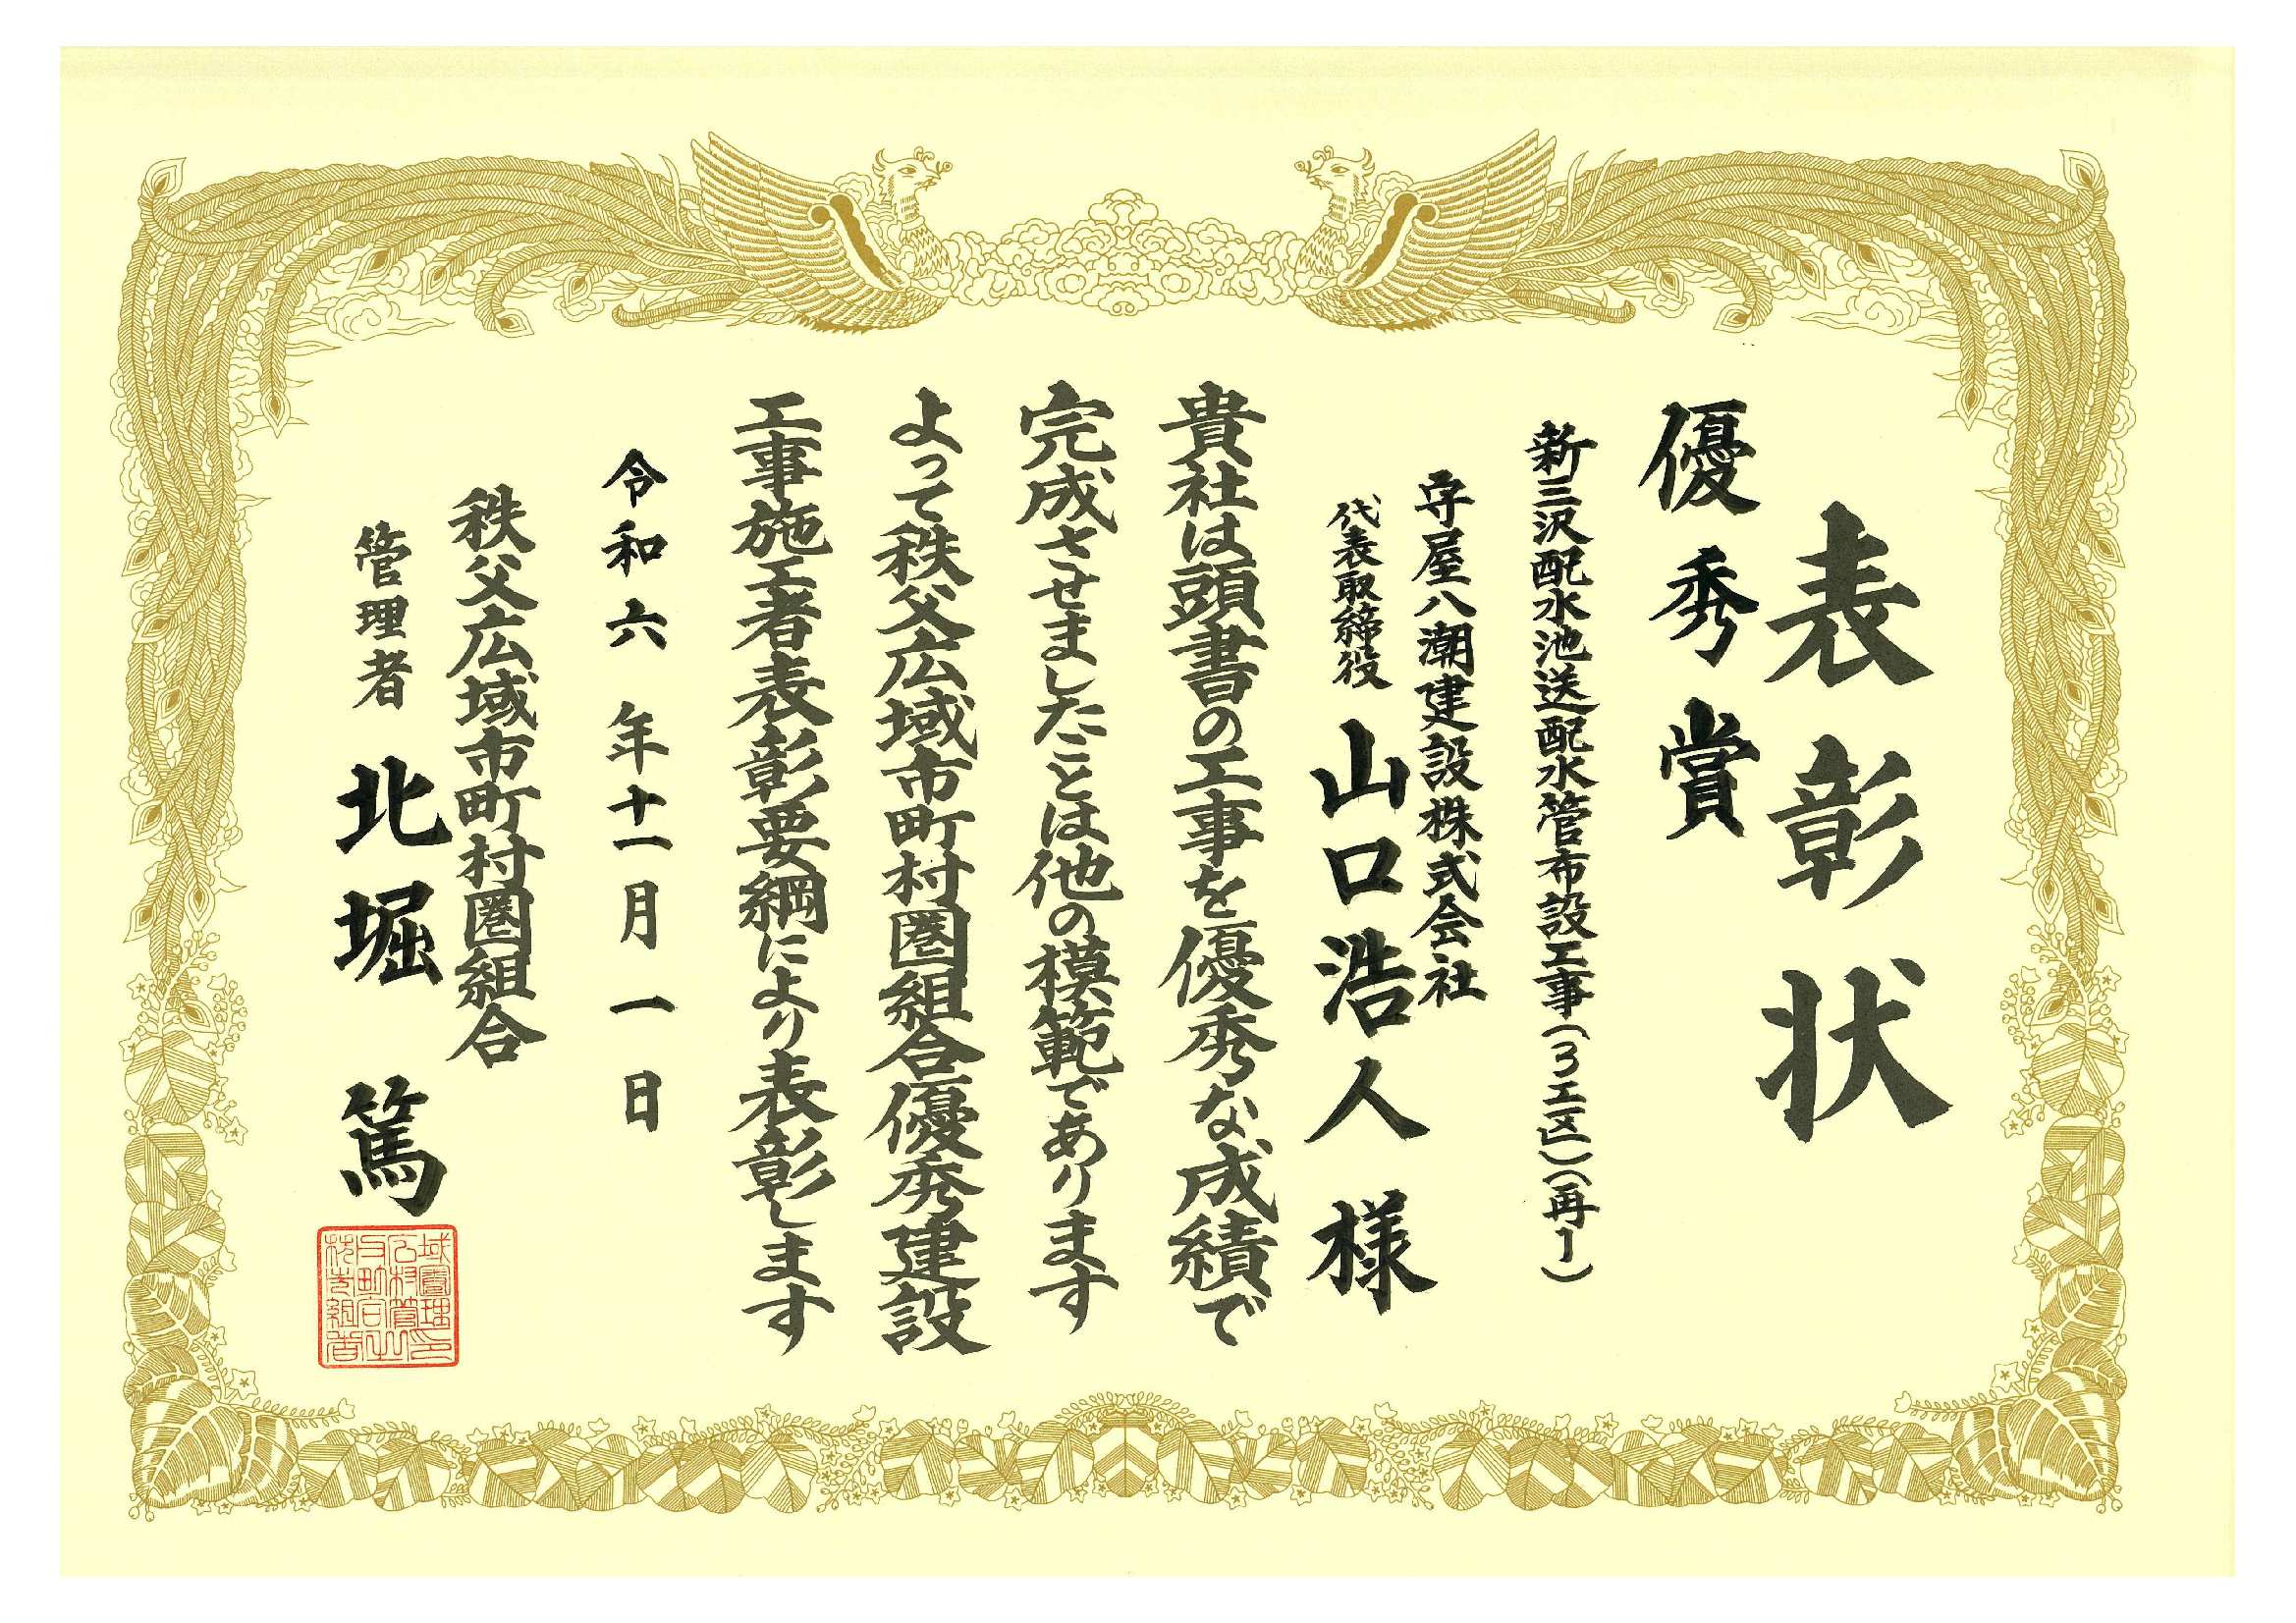 表彰状
優秀賞
新三沢配水池送配水管布設工事(3工区)(再1)
守屋八潮建設株式会社
代表取締役 山口浩人 様
貴社は頭書の工事を優秀な成績で
完成させましたことは他の模範であります
よって秩父広域市町村圏組合優秀建設
工事施工者表彰要綱により表彰します
令和六年十一月一日
秩父広域市町村圏組合
管理者 北堀 篤